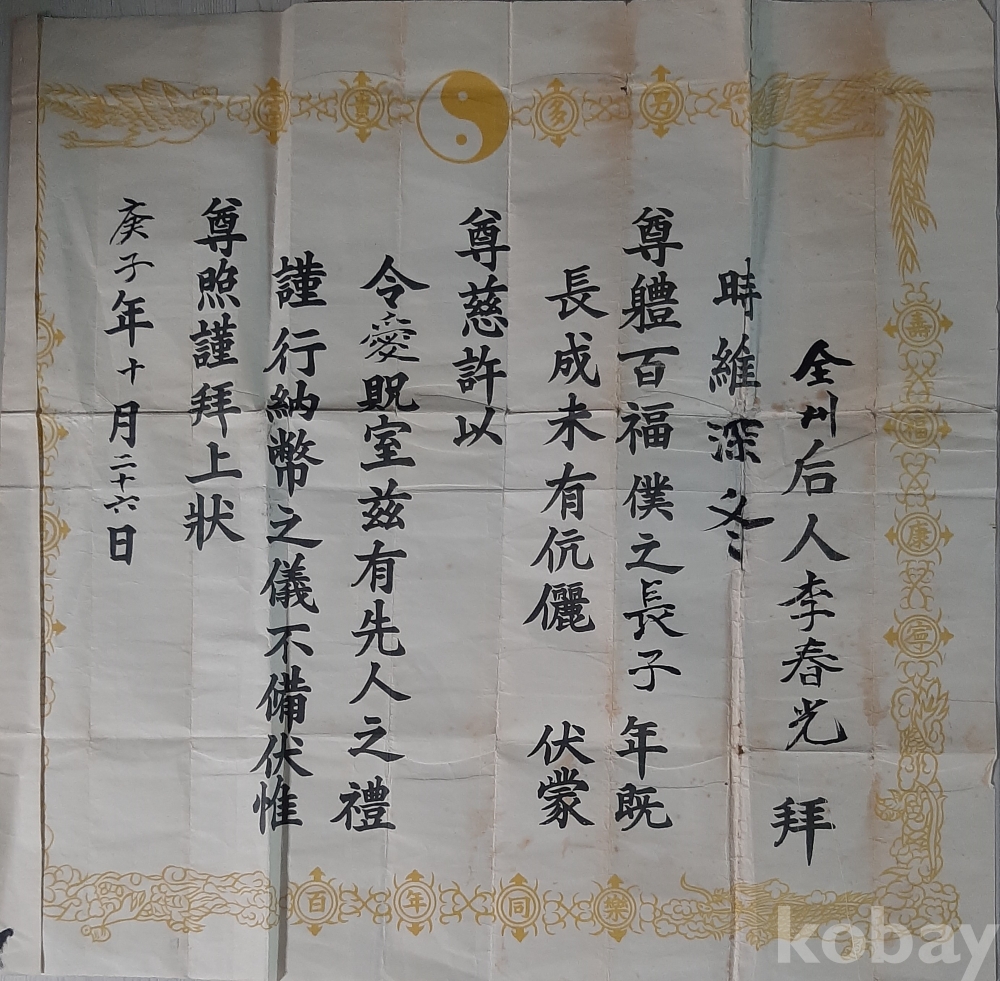 全州后人李春光 拜
時維深冬
尊軆百福僕之長子年既
長成未有伉儷 伏蒙
尊慈許以
令愛貺室玆有先人之禮
謹行納幣之儀不備伏惟
尊照謹拜上狀
庚子年十月二十六日
富貴多男
壽福康寧
百年同樂
kobay